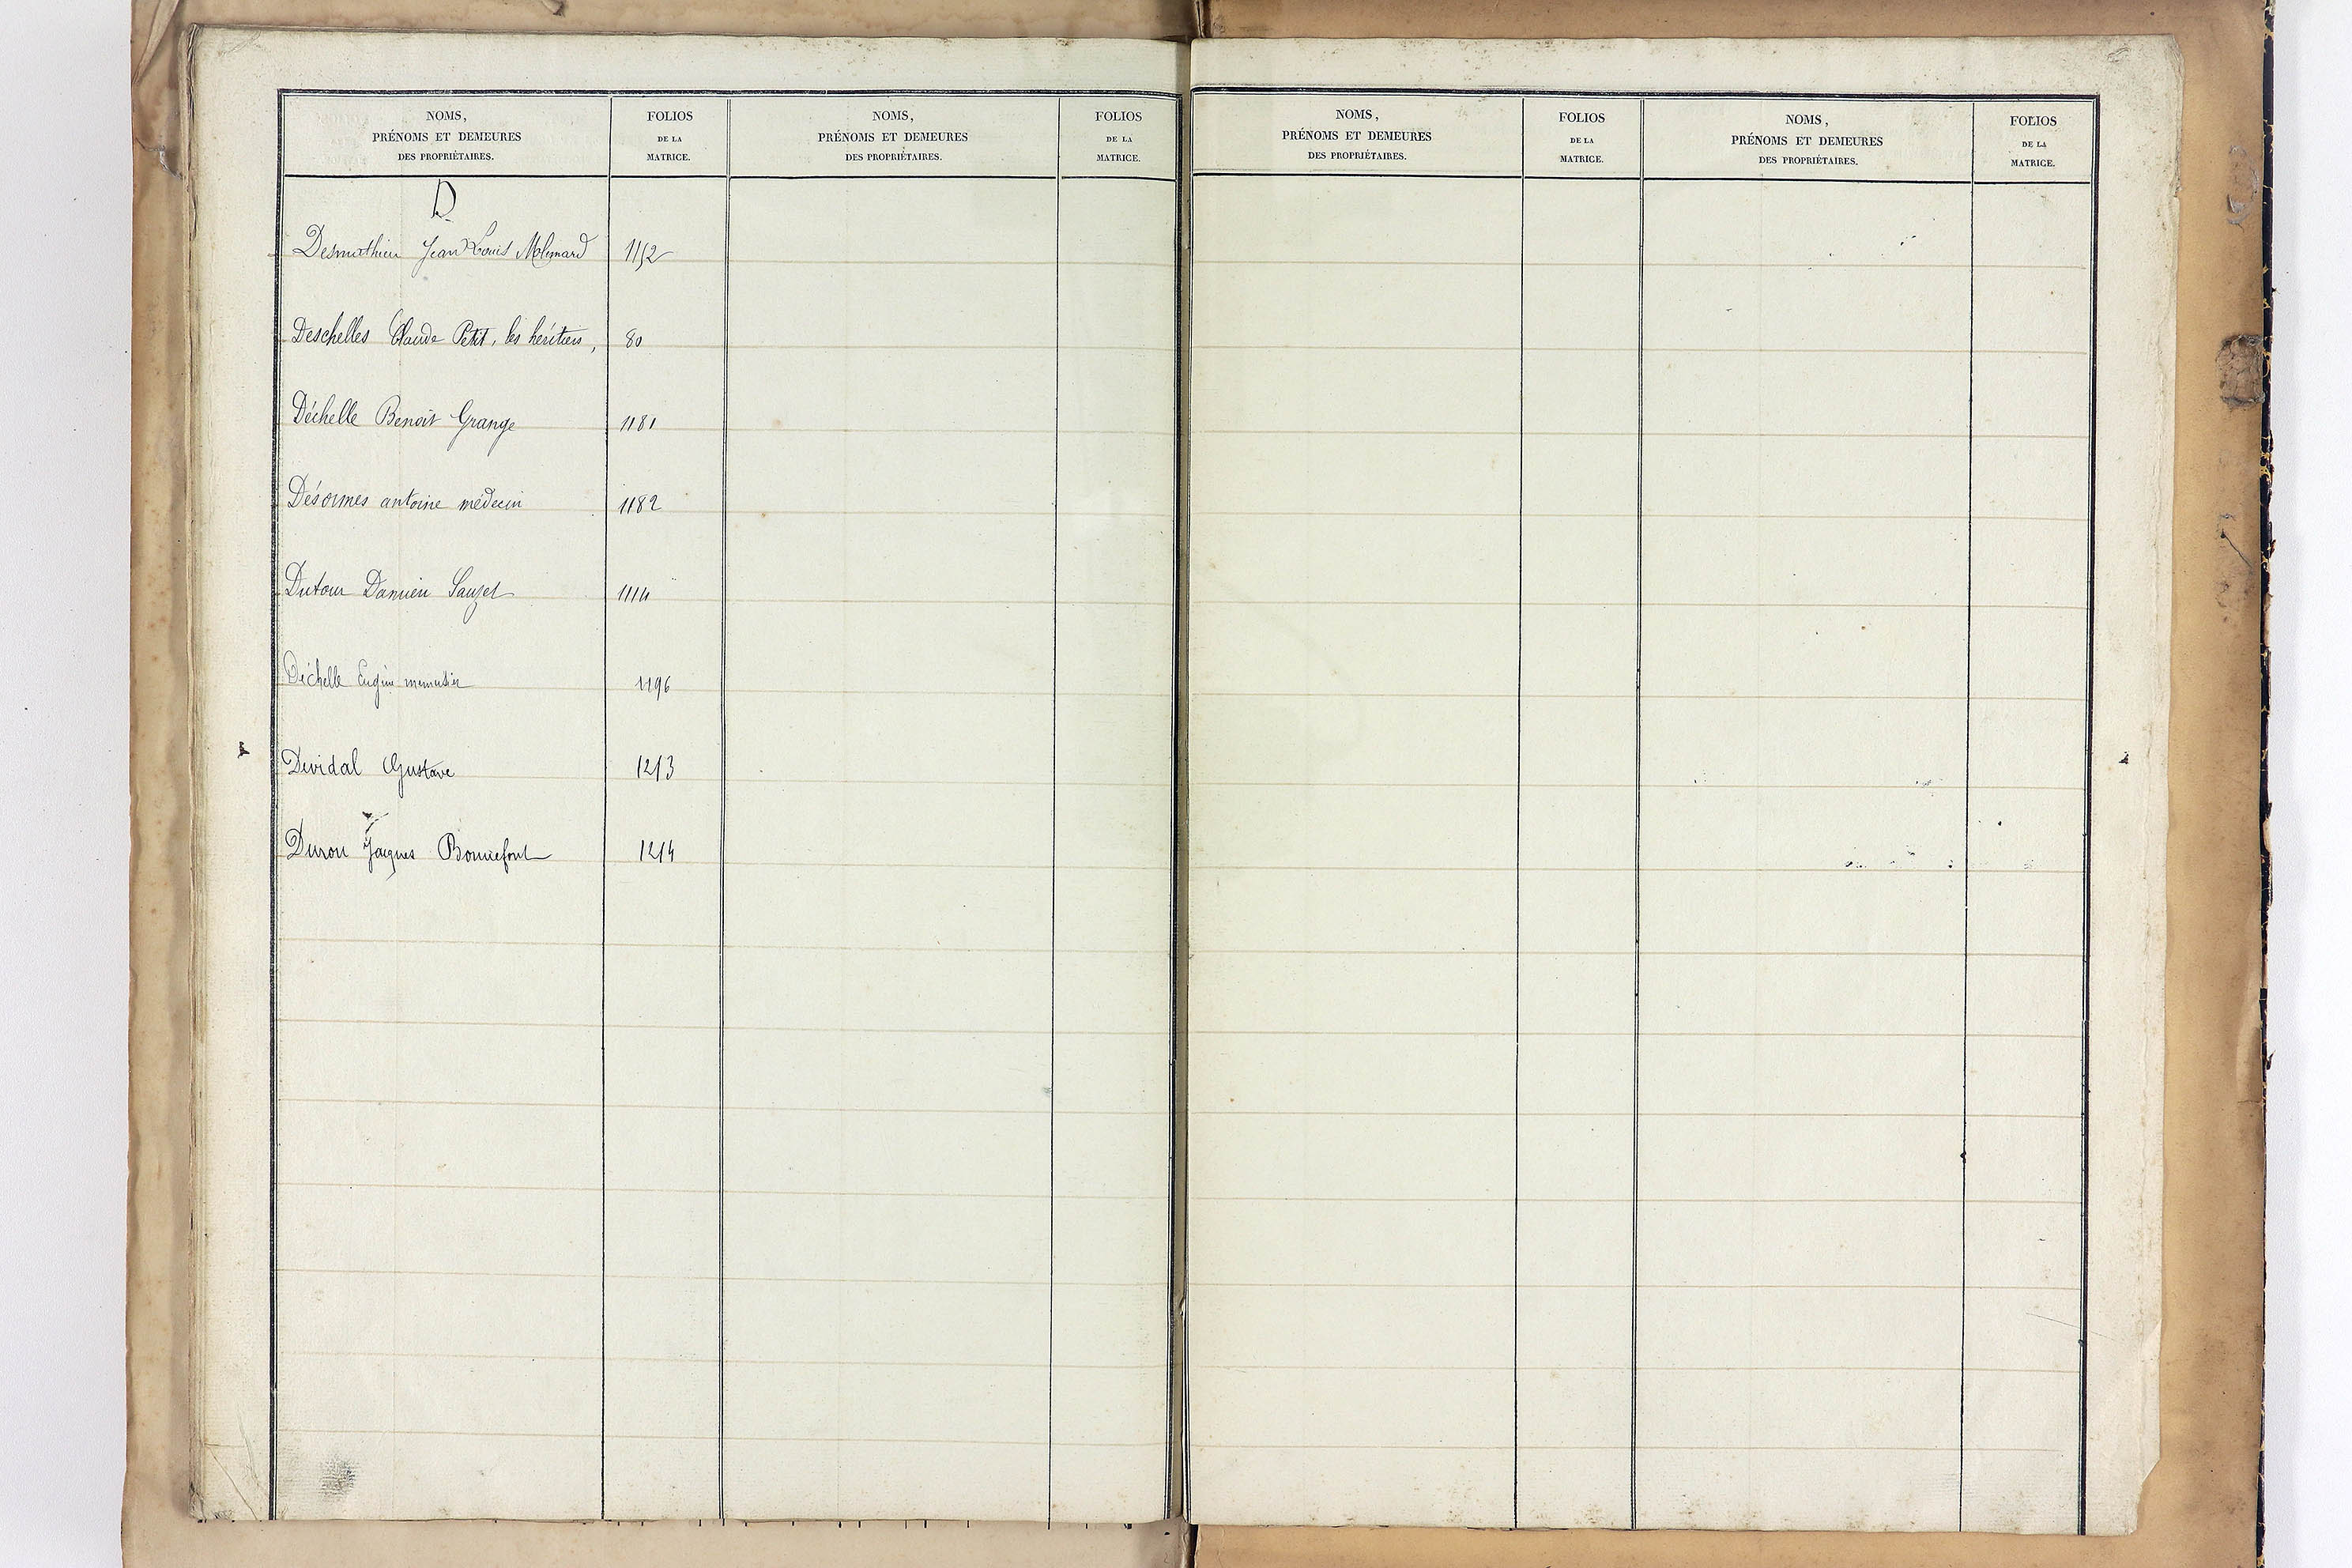 NOMS,
PRÉNOMS ET DEMEURES
DES PROPRIÉTAIRES.
FOLIOS
DE LA
MATRICE.
NOMS,
PRÉNOMS ET DEMEURES
DES PROPRIÉTAIRES.
FOLIOS
DE LA
MATRICE.
D
Desmathieu Jean Louis Molimard 1152
Deschelles Claude Petit, les héritiers, 80
Déchelle Benoit Grange 1181
Désormes antoine médecin 1182
Dutour Damien Sauzet
Déchelle Eugène menuisier 1196
Devidal Gustave 1213
Duron Jacques Bonnefont 1214
NOMS,
PRÉNOMS ET DEMEURES
DES PROPRIÉTAIRES.
FOLIOS
DE LA
MATRICE.
NOMS,
PRÉNOMS ET DEMEURES
DES PROPRIÉTAIRES.
FOLIOS
DE LA
MATRICE.